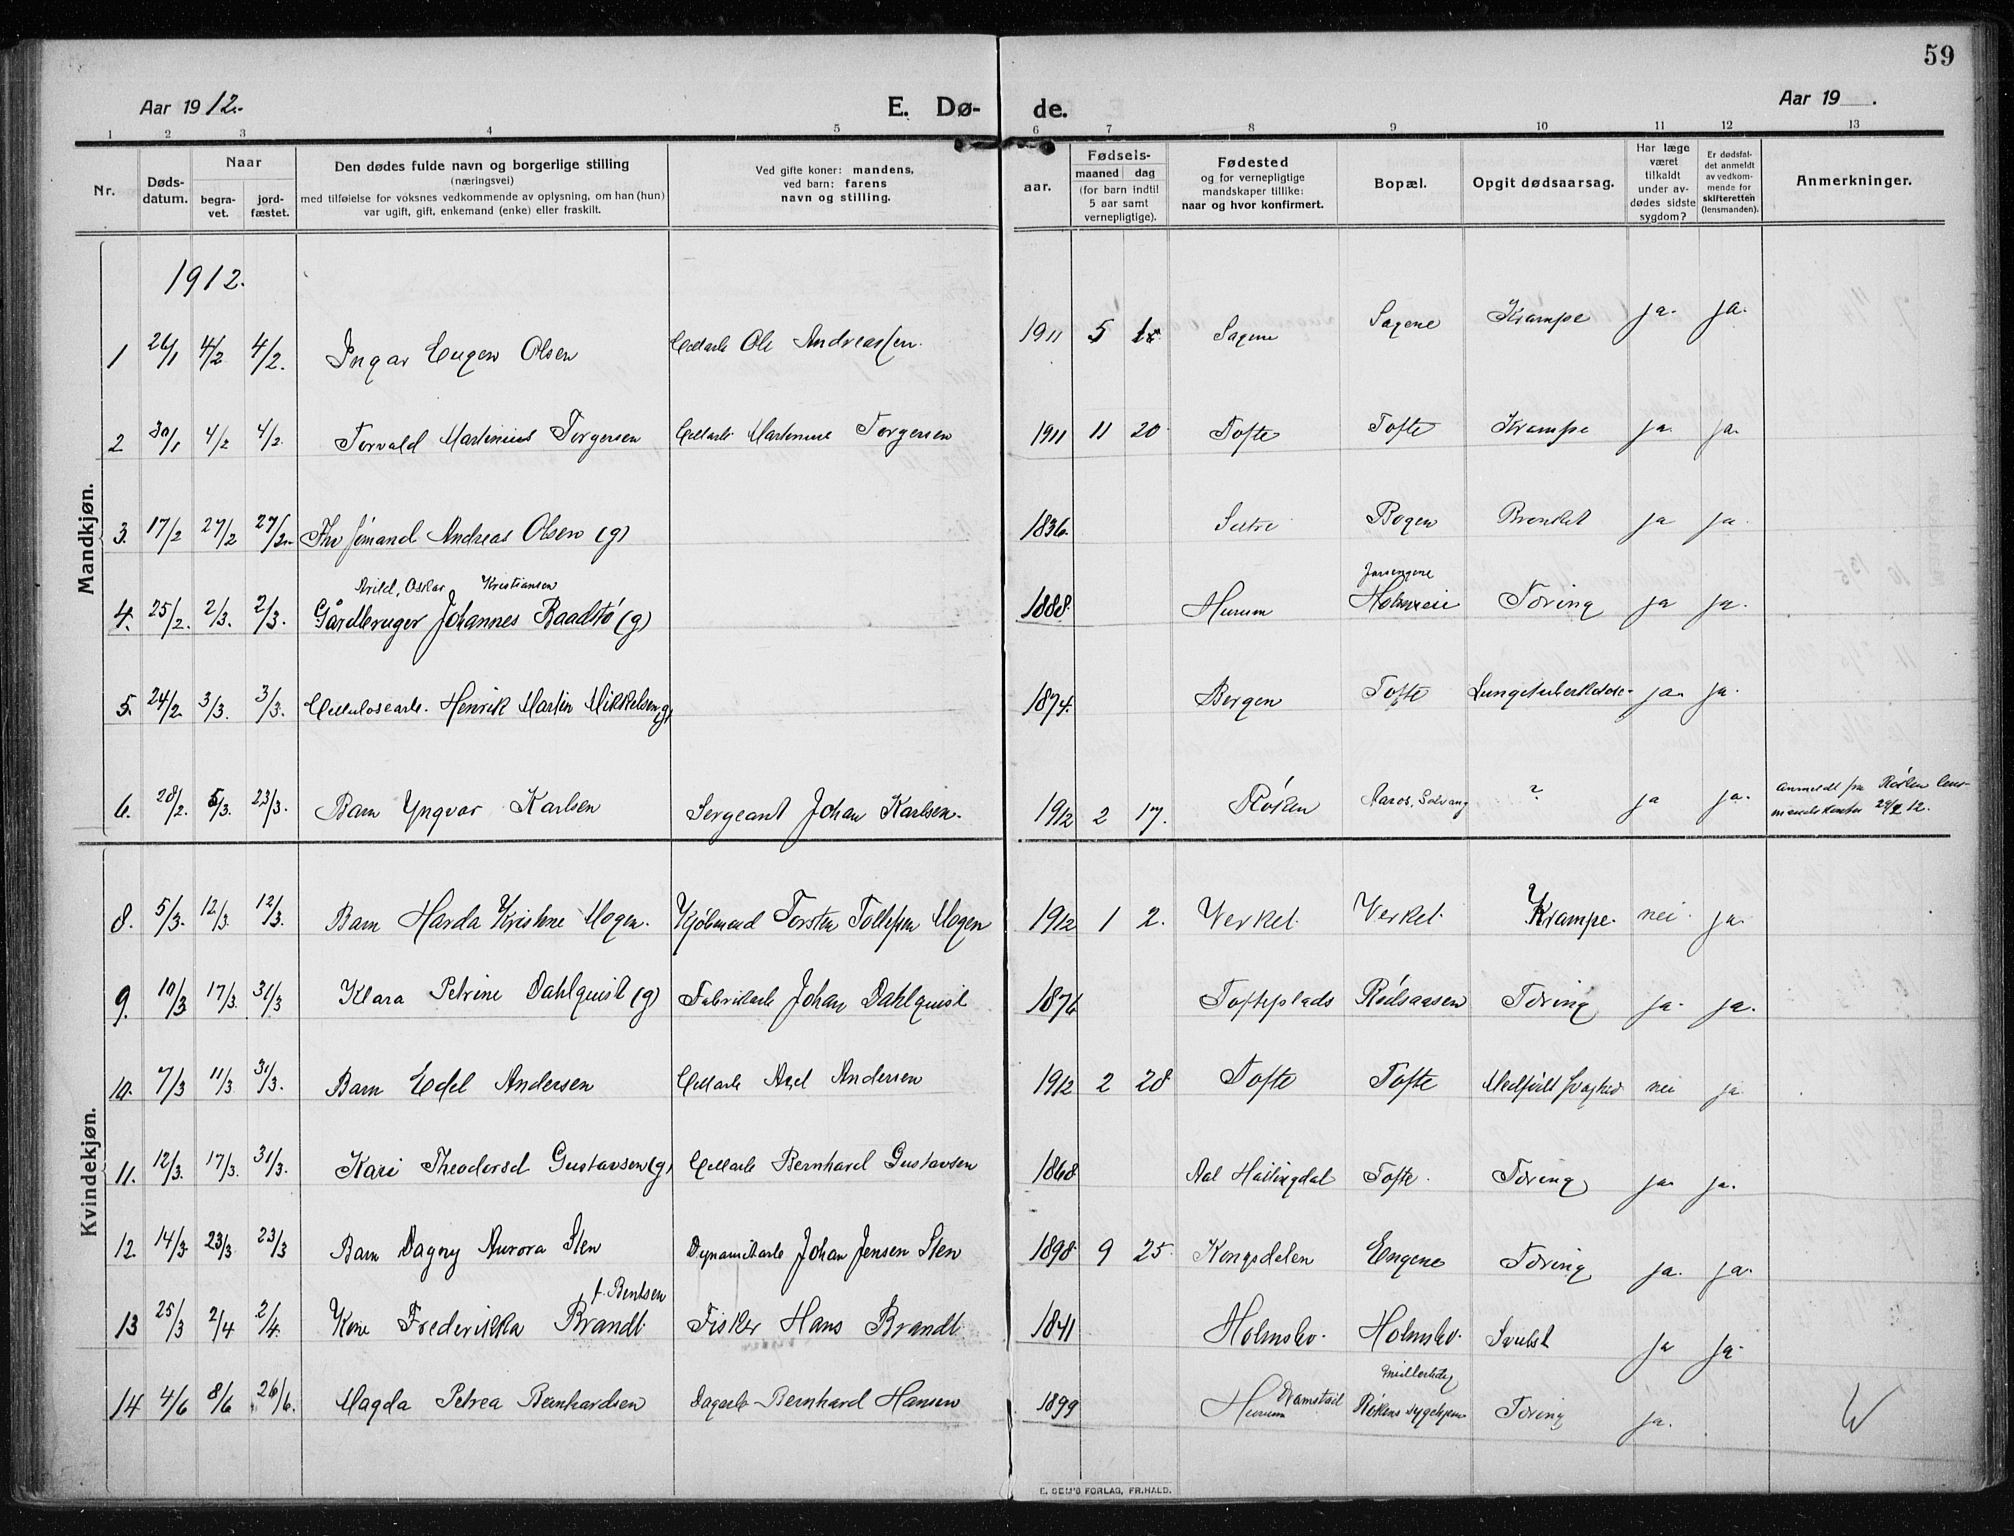 59
Aar 1912.
E. Dø-
de.
Aar 19 .
1 2 3 4 5 6 7 8 9 10 11 12 13
Nr.
Døds-
datum.
Naar
begra-
vet.
jord-
fæstet.
Den dødes fulde navn og borgerlige stilling
(næringsvei)
med tilføielse for voksnes vedkommende av oplysning, om han (hun)
var ugift, gift, enkemand (enke) eller fraskilt.
Ved gifte koner: mandens,
ved barn: farens
navn og stilling.
aar.
Fødsels-
maaned dag
(for barn indtil
5 aar samt
vernepligtige).
Fødested
og for vernepligtige
mandskaper tillike:
naar og hvor konfirmert.
Bopæl.
Opgit dødsaarsag.
Har læge
været
tilkaldt
under av-
dødes sidste
sygdom?
Er dødsfal-
det anmeldt
av vedkom-
mende for
skifteretten
(lensmanden).
Anmerkninger.
Mandkjøn.
1912.
1 26/1 4/2 4/2. Ingar Eugen Olsen Cellarb Ole Andreassen. 1911 5 Sagene Sagene Krampe ja. ja.
2 30/1 4/2 4/2. Torvald Martinius Torgersen Cellarb. Martinius Torgersen 1911 11 20. Tofte Tofte Krampe ja. ja.
3. 17/2 27/2 27/2. Fhv sømand Andreas Olsen (g) 1836. Sætre Bogen ja ja.
Arild, Oskar Kristiansen
4. 25/2. 2/3. 2/3. Gårdbruger Johannes Raadstø (g) 1888. Hurum Holmseie Tæring ja ja.
5. 24/2. 3/3. 3/3. Cellulosearb. Henrik Martin Mikkelsen (g) 1874. Bergen Tofte Lungetuberkulose. ja. ja.
6. 28/2. 5/3. 23/3. Barn Yngvar Karlsen Sergeant Johan Karlsen. 1912 2 17. Røken Aaros, Solvang ? ja ja. Anmeldt fra Røken lens-
mandskontor 29/2 12.
Kvindekjøn.
8. 5/3. 12/3. 12/3. Barn Harda Kristine Mogen. Kjøbmand Torsten Tollefsen Mogen 1912 1 2. Verket. Verket. Krampe. nei. ja.
9. 10/3 17/3. 31/3 Klara Petrine Dahlquist (g) Fabrikarb Johan Dahlquist 1876 Tofteplads Rødsaasen Tæring ja. ja.
10. 7/3 11/3 31/3. Barn Edel Andersen Cellarb Axel Andersen 1912 2 28 Tofte Tofte Medfødt svaghed nei ja.
11. 12/3. 17/3. 31/3. Kari Theodorsd Gustavsen (g) Cellarb Bernhard Gustavsen 1868 Aal Hallingdal Tofte. Tæring ja. ja.
12. 14/3. 23/3. 23/3 Barn Dagny Aurora Sten Dynamitarb Johan Jensen Sten 1898. 9 25. Kongsdelen Engene Tæring ja. ja.
f. Bentsen
13 25/3 2/4 2/4. Kone Frederikka Brandt. Fisker Hans Brandt 1841 Holmsbo. Holmsbo. Svulst ja ja.
14 4/6 8/6 26/6. Magda Petrea Bernhardsen Dagarb. Bernhard Hansen 1899 Hurum Røkens sygehjem Tæring ja.
E. SEM'S FORLAG, FR.HALD.